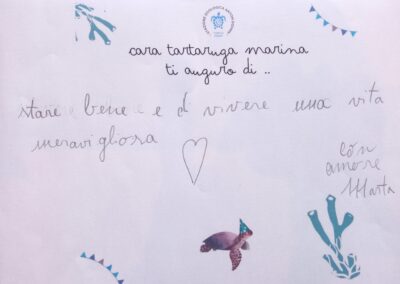 cara tartaruga marina
ti auguro di ..
stare bene e d vivere una vita
meravigliosa
con
amore
Marta